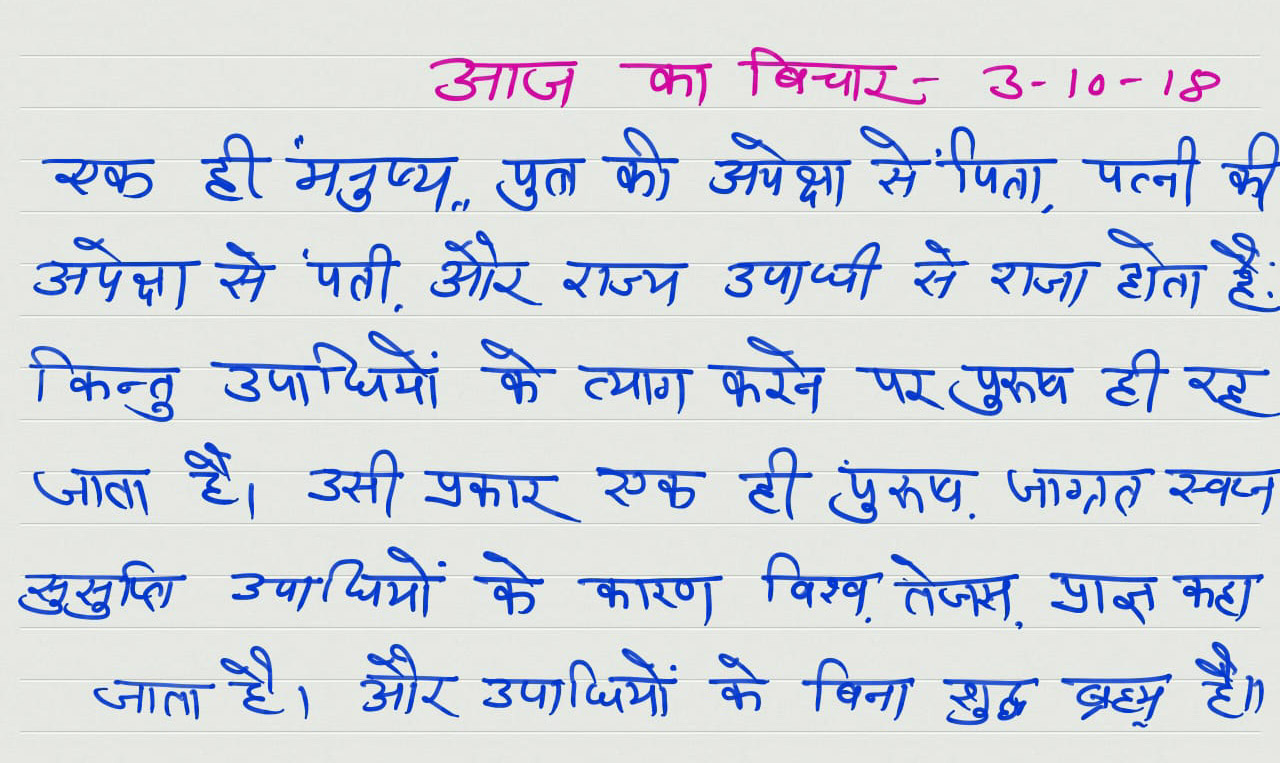 आज का विचार - 3-10-18
एक ही "मनुष्य,, पुत्र की अपेक्षा से पिता, पत्नी की
अपेक्षा से पती, और राज्य उपाधी से राजा होता है:
किन्तु उपाधियों के त्याग करने पर पुरुष ही रह
जाता है। उसी प्रकार एक ही पुरुष, जाग्रत स्वप्न
सुसुप्ति उपाधियों के कारण विश्व, तेजस, प्राज्ञ कहा
जाता है। और उपाधियों के बिना शुद्ध ब्रह्म है॥